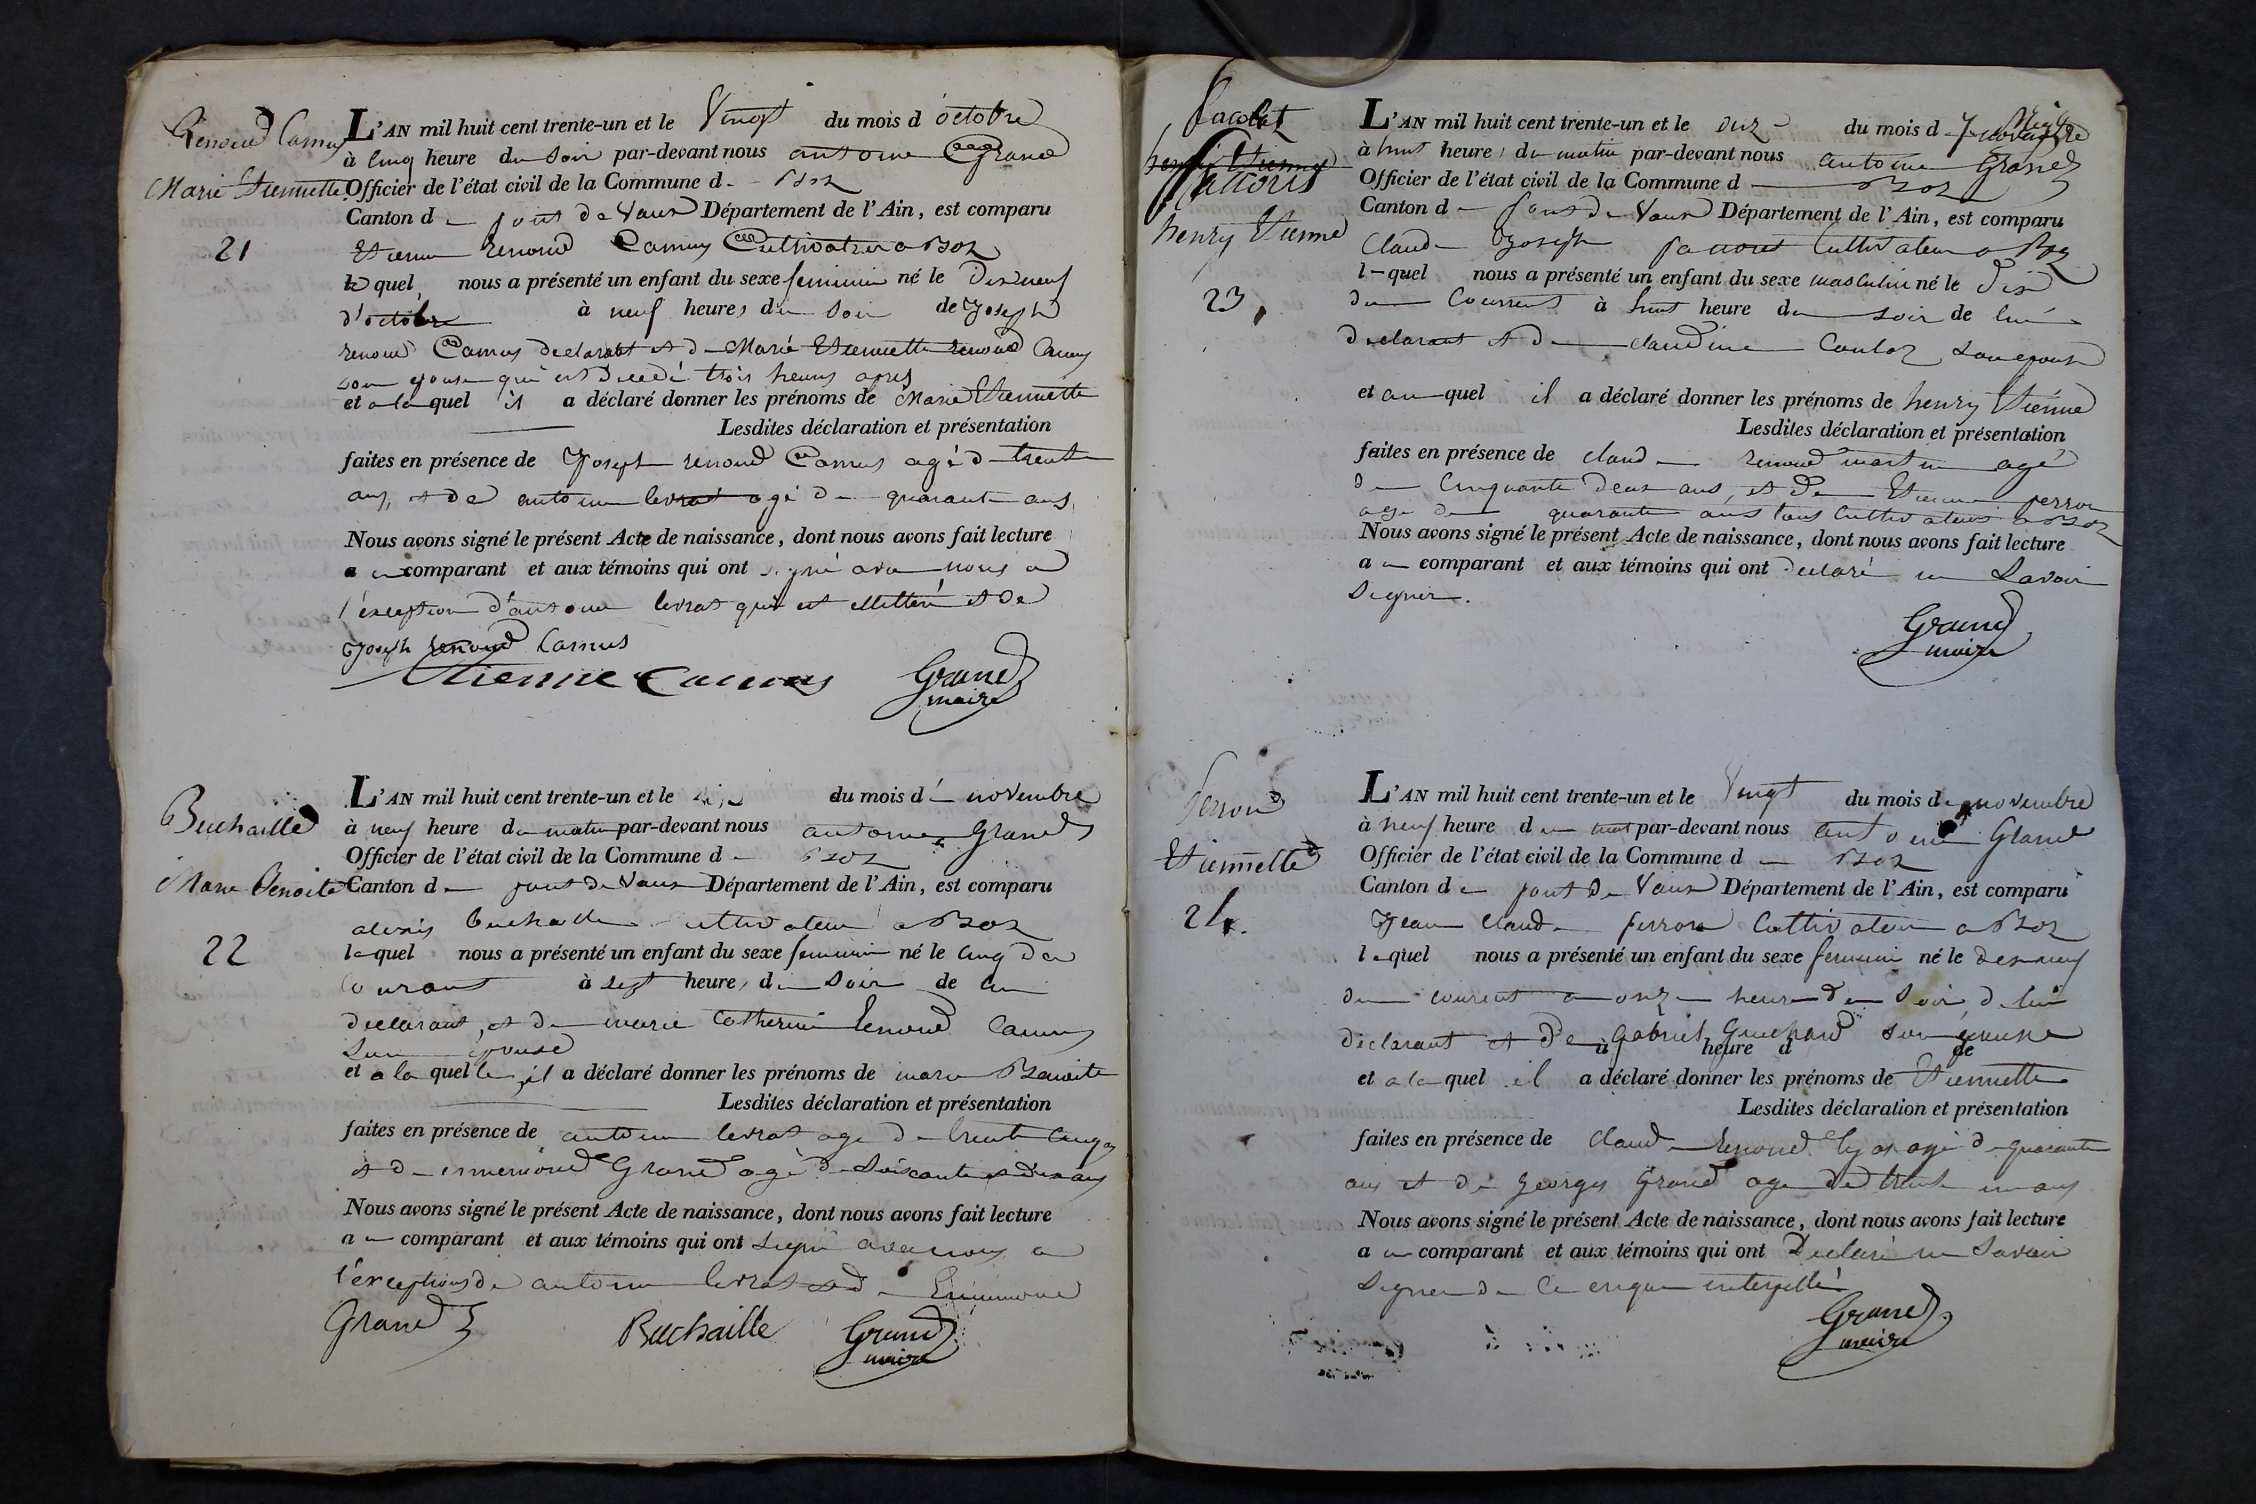 Renoud Camus
Marie Etiennette
21
L'AN mil huit cent trente-un et le Vingt du mois d'octobre
à Cinq heure du Soir par-devant nous antoine Grand
Officier de l'état civil de la Commune d Boz
Canton de pont de Vaux Département de l'Ain, est comparu
Etienne Renoud Camus Cultivateur a Boz
lequel nous a présenté un enfant du sexe feminin né le Dixneuf
d'octobre à neuf heures du Soir de Joseph
renoud Camus declarant et de Marie Etiennette renoud Camus
son epouse qui est decedé trois heures apres
et a la quel il a déclaré donner les prénoms de Marie Etiennette
Lesdites déclaration et présentation
faites en présence de Joseph renoud Camus agé de trente
ans, et de antoine levrat agé de quarante ans,
Nous avons signé le présent Acte de naissance, dont nous avons fait lecture
au comparant et aux témoins qui ont signé avec nous a
l'exception d'antoine levrat qui est illitéré et de
Joseph renoud Camus
Etienne Camus Grand
maire
Buchaille
Marie Benoite
22
L'AN mil huit cent trente-un et le six du mois de novembre
à neuf heure du matin par-devant nous antoine Grand
Officier de l'état civil de la Commune de Boz
Canton de pont de Vaux Département de l'Ain, est comparu
alexis buchaille cultivateur a Boz
lequel nous a présenté un enfant du sexe feminin né le cinq du
courant à sept heures du Soir de lui
declarant, et de marie Catherine Renoud Camus
Son épouse
et a la quelle il a déclaré donner les prénoms de marie Benoite
Lesdites déclaration et présentation
faites en présence de antoine levrat age de trente Cinq ans
et de Grand agé de Soixante et dix ans
Nous avons signé le présent Acte de naissance, dont nous avons fait lecture
au comparant et aux témoins qui ont Signé avec nous a
l'exception de antoine levrat et de
Grand Buchaille Grand
maire
henry Etienne
Pacoris
henry Etienne
23
L'AN mil huit cent trente-un et le onze du mois de novembre
à huit heure, du matin par-devant nous antoine Grand
Officier de l'état civil de la Commune d Boz
Canton de pont de Vaux Département de l'Ain, est comparu
Claude Joseph Cultivateur a Boz
lequel nous a présenté un enfant du sexe masculin né le Dix
du Courrent à huit heure du soir de lui
declarant et de claudine Son epouse
et au quel il a déclaré donner les prénoms de henry Etienne
Lesdites déclaration et présentation
faites en présence de claude renoud martin agé
de Cinquante deux ans, et de Etienne perron
age de quarante ans tous Cultivateurs a Boz
Nous avons signé le présent Acte de naissance, dont nous avons fait lecture
au comparant et aux témoins qui ont declaré ne Savoir
Signer.
Grand
maire
Perron
Etiennette
24.
L'AN mil huit cent trente-un et le Vingt du mois de novembre
à neuf heure du par-devant nous antoine Grand
Officier de l'état civil de la Commune de Boz
Canton de pont de Vaux Département de l'Ain, est comparu
Jean Claude perron Cultivateur a Boz
lequel nous a présenté un enfant du sexe feminin né le dixneuf
du courent a onze heure du Soir de lui
déclarant et de Gabriel Guichard son epouse
à heure d de
et a la quel il a déclaré donner les prénoms de Etiennette
Lesdites déclaration et présentation
faites en présence de Claude Renoud agé de quarante
ans et de Georges Grand age de trente un ans
Nous avons signé le présent Acte de naissance, dont nous avons fait lecture
au comparant et aux témoins qui ont Declaré ne Savoir
Signer de ce enquis interpellé
Grand
maire